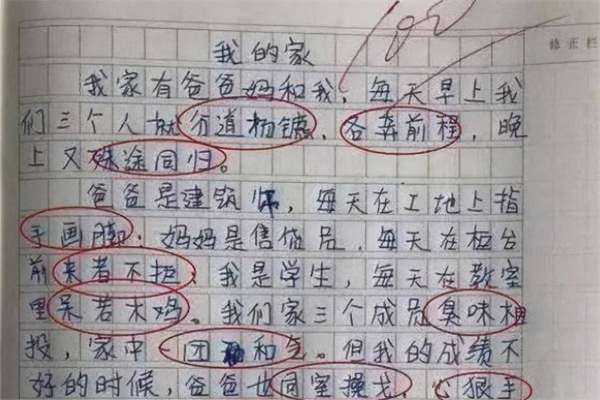 100
修正栏
我的家
我家有爸爸妈和我，每天早上我
们三个人就分道扬镳、各奔前程，晚
上又殊途同归。
爸爸是建筑师，每天在工地上指
手画脚；妈妈是售货员，每天在柜台
前来者不拒；我是学生，每天在教室
里呆若木鸡。我们家三个成员臭味相
投，家中一团和气。但我的成绩不
好的时候，爸爸也同室操戈，心狠手